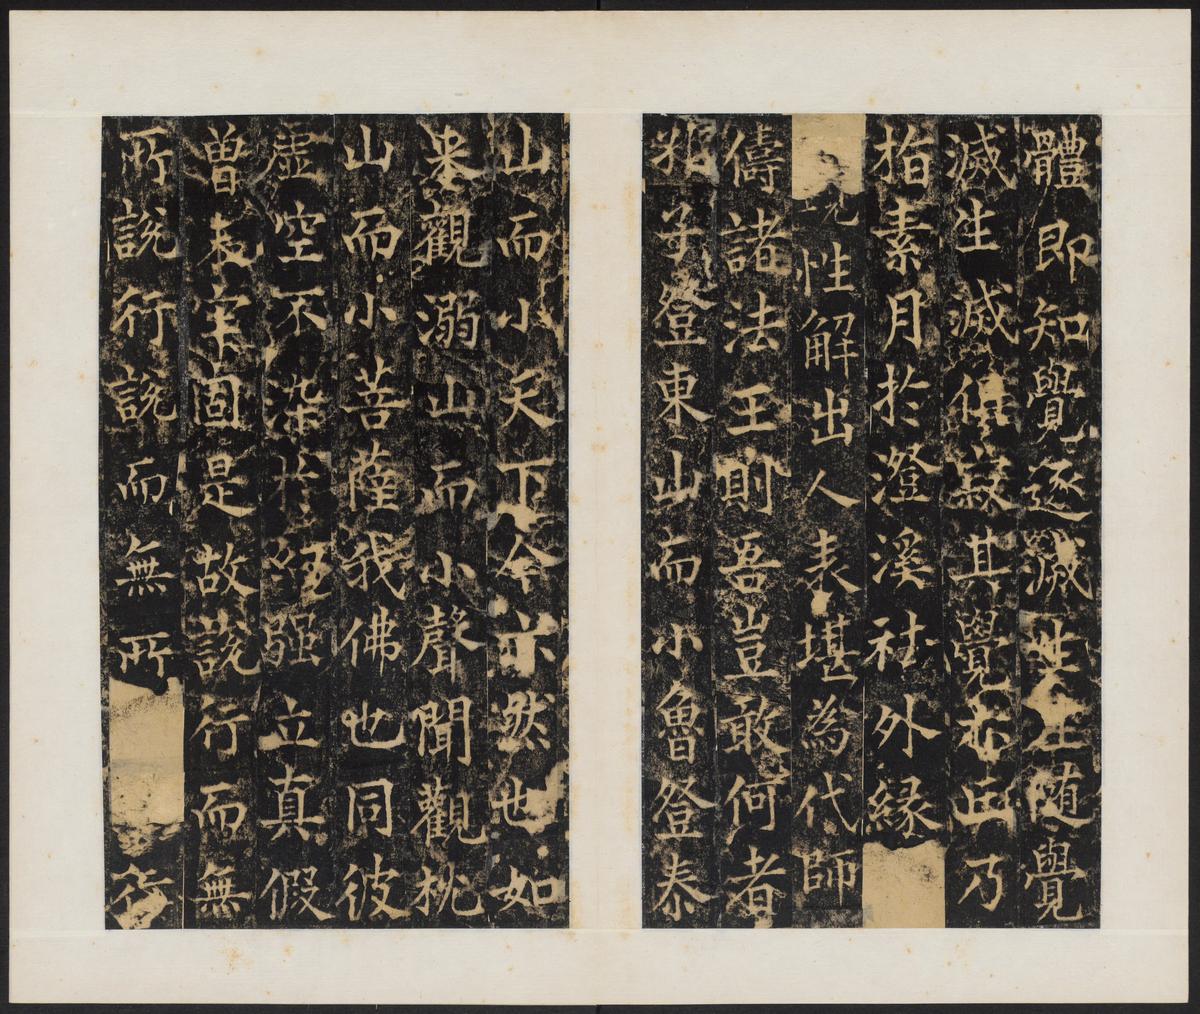 體即知覺逐滅生生随覺
滅生滅俱寂其覺亦亡乃
指素月於澄溪社外緣
見性解出人表堪為代師
儔諸法王則吾豈敢何者
子登東山而小魯登泰
山而小天下今亦然也如
来觀溺山而小聲聞觀枕
山而小菩薩我佛也同彼
虛空不染於經强立真假
曽未牢固是故說行而無
所說行說而無所行